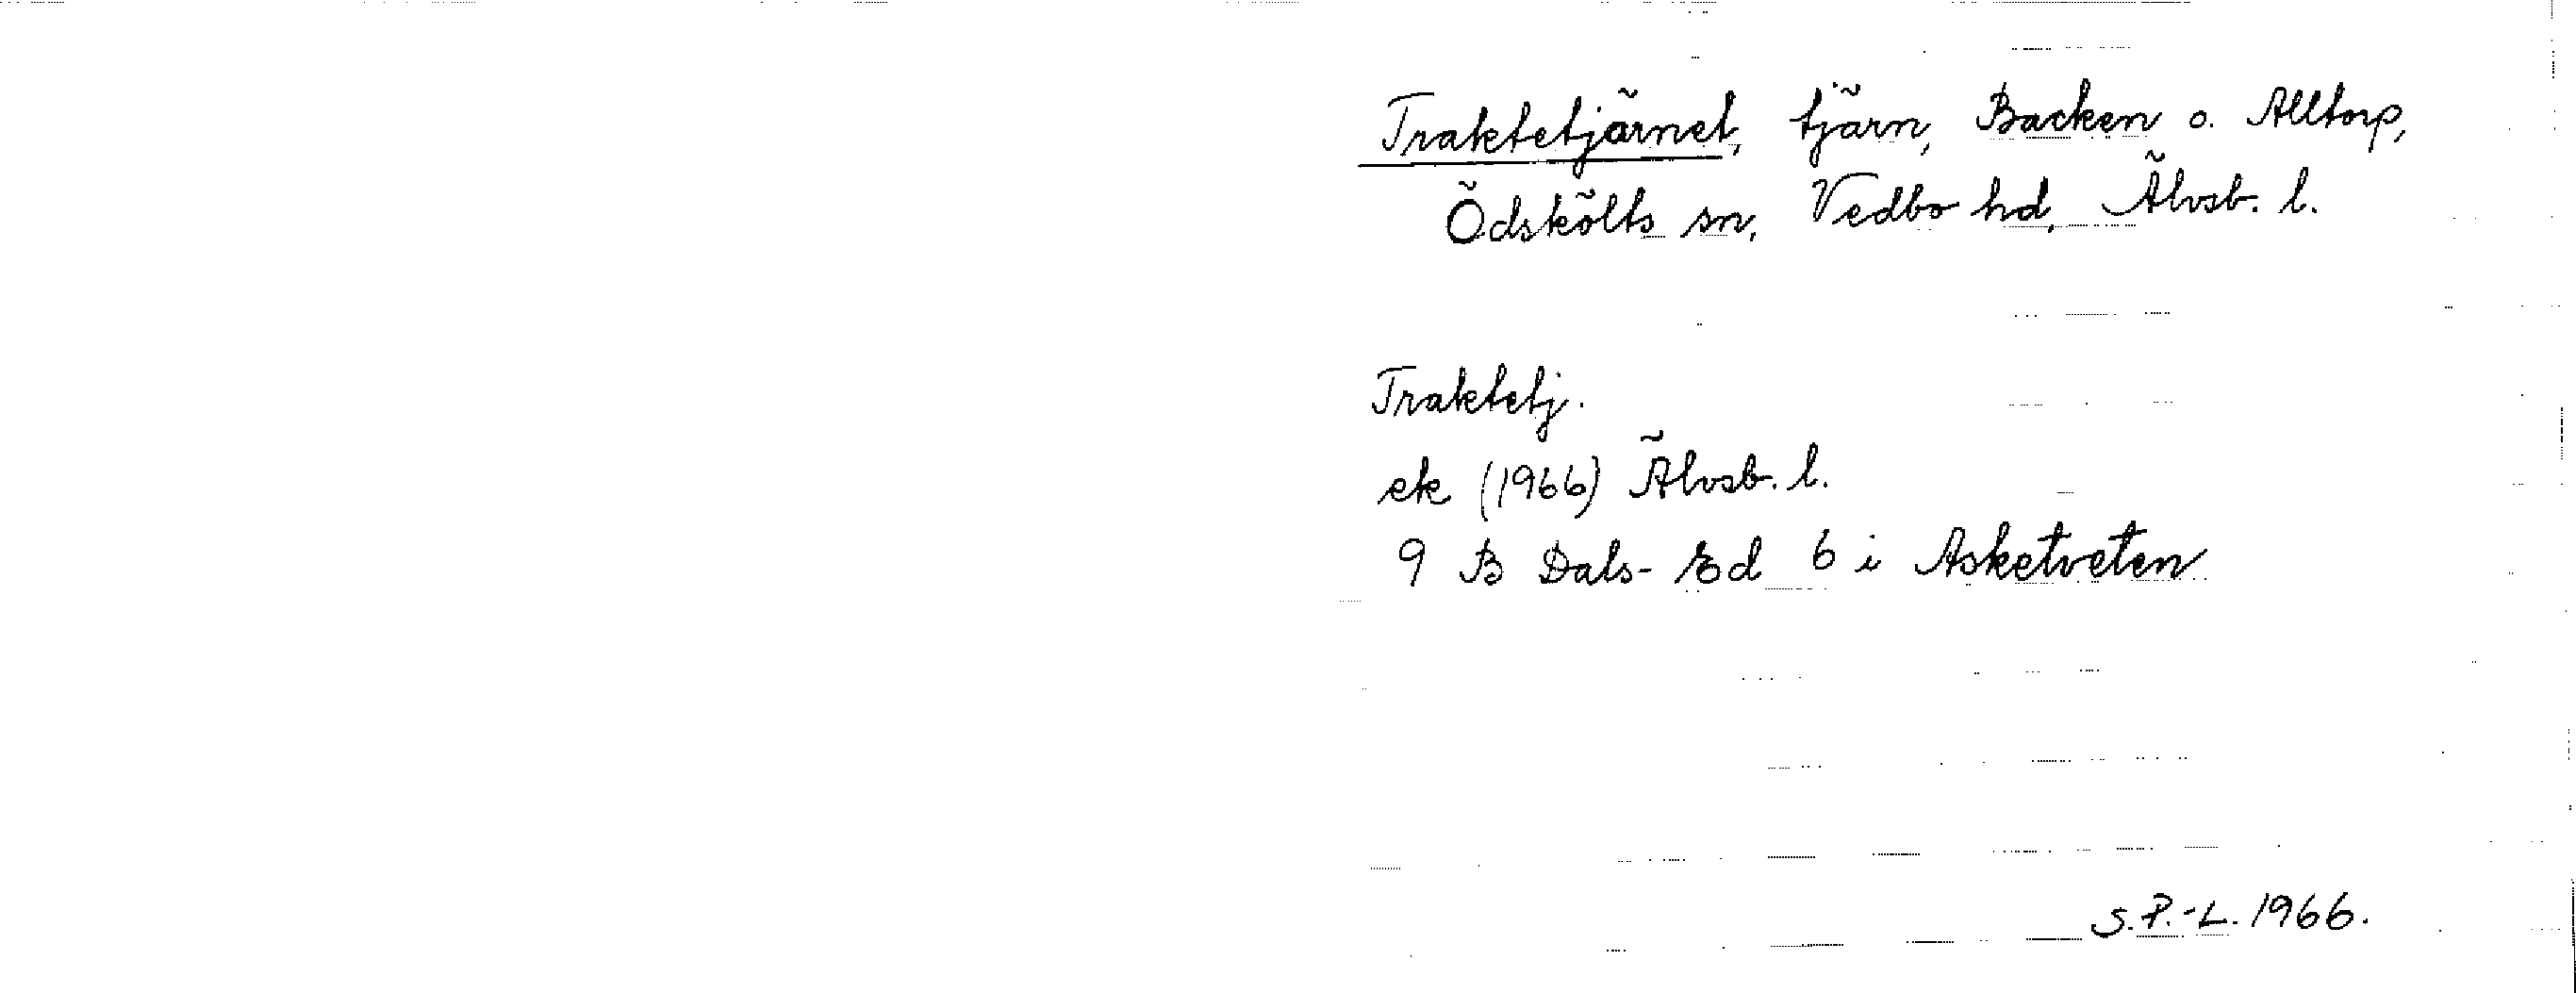 Traktetjärnet, tjärn, Backen o. Alltorp,
Ödskölts sn, Vedbo hd, Älvsb. l.
Traktetj.
ek (1966) Älvsb. l.
9 B Dals-Ed 6 i Asketveten
S.P.-L. 1966.